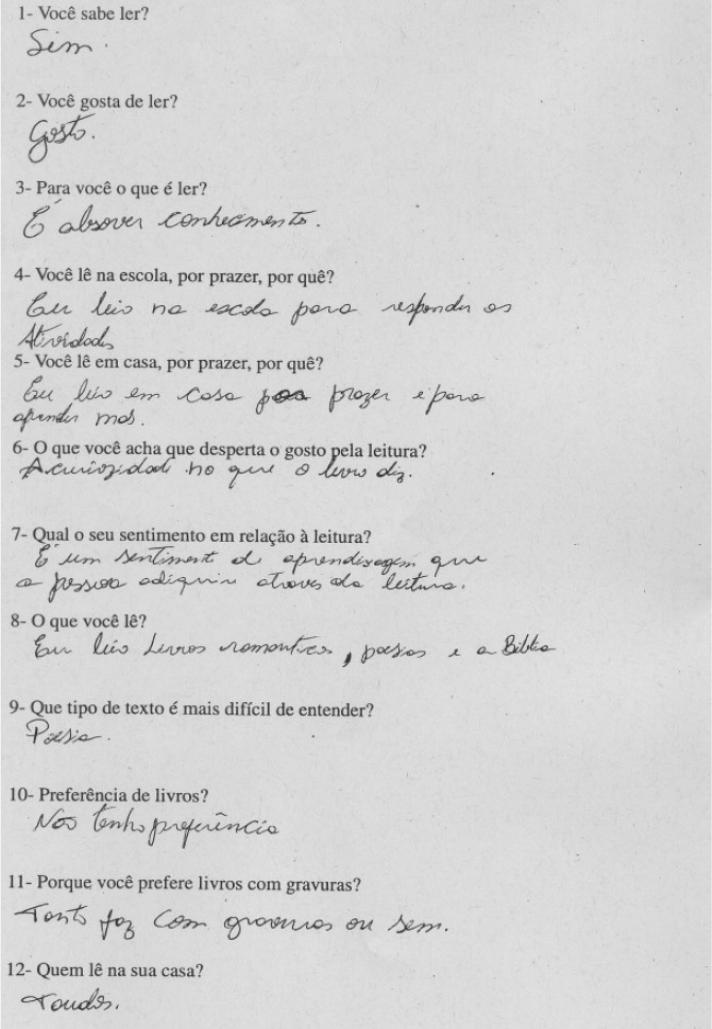 1- Você sabe ler?
Sim.
2- Você gosta de ler?
Gosto.
3- Para você o que é ler?
É absover conhecimento.
4- Você lê na escola, por prazer, por quê?
Eu leio na escola para responder as
Atividades
5- Você lê em casa, por prazer, por quê?
Eu leio em casa por prazer e para
aprender mas.
6- O que você acha que desperta o gosto pela leitura?
A curiozidade no que o livro diz.
7- Qual o seu sentimento em relação à leitura?
É um sentimento de aprendizagem que
a pessoa adiquiri atraves da leitura.
8- O que você lê?
Eu leio Livros romanticos, poesias e a Biblia
9- Que tipo de texto é mais difícil de entender?
Poesia.
10- Preferência de livros?
Não tenho preferência
11- Porque você prefere livros com gravuras?
Tanto faz com gravuras ou sem.
12- Quem lê na sua casa?
Toudos.